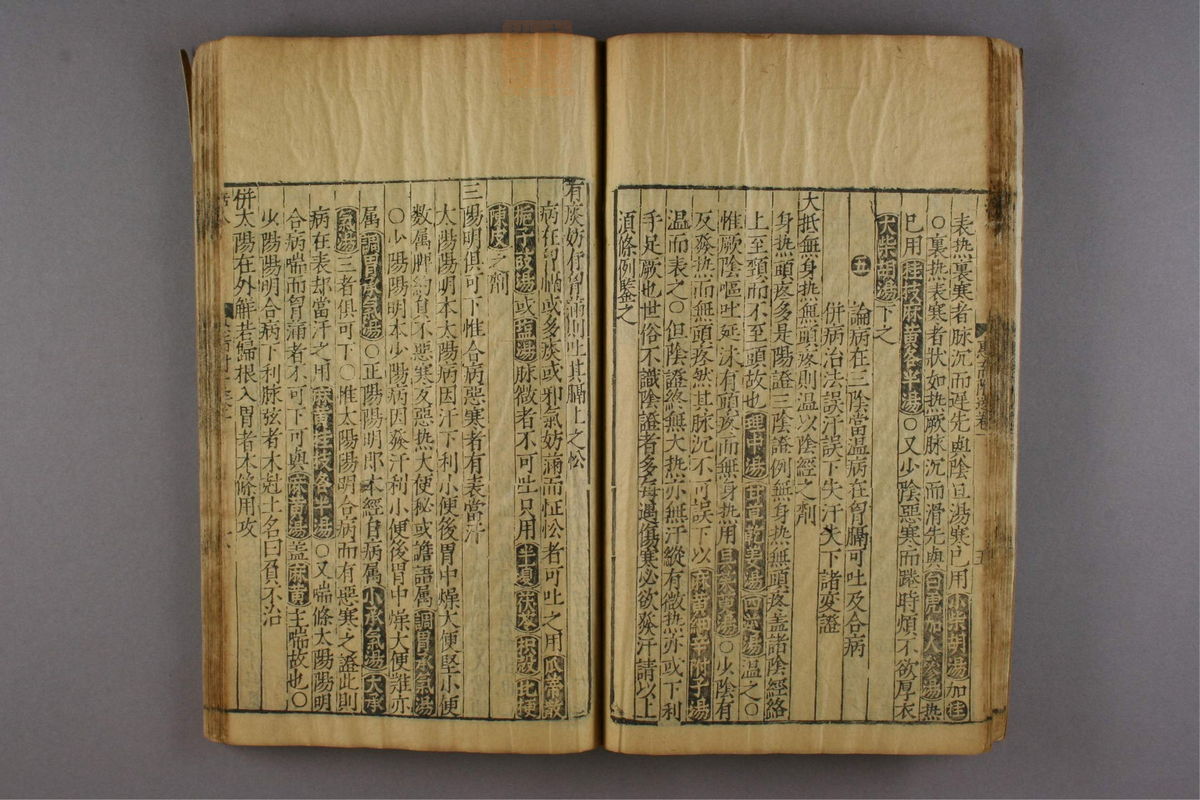 表热裏寒者脉沉而遲先與陰旦湯寒已用小柴胡湯加桂
○裏热表寒者狀如热厥脉沉而滑先與白虎加人參湯热
已用桂枝麻黄各半湯○又少陰惡寒而踡時煩不欲厚衣
大柴胡湯下之
五 論病在三陰當温病在胷膈可吐及合病
併病治法誤汗誤下失汗失下諸変證
大抵無身热無頭疼則温以陰經之劑
身热頭疼多是陽證三陰證例無身热無頭疼盖諸陰經絡
上至頚而不至頭故也理中湯甘草乾姜湯四逆湯温之○
惟厥陰嘔吐延沫有頭疼而無身热用吳茱萸湯○少陰有
反發热而無頭疼然其脉沉不可誤下以麻黄細辛附子湯
温而表之○但陰證終無大热亦無汗縱有微热亦或下利
手足厥也世俗不識陰證者多每遇傷寒必欲發汗請以上
項條例鑒之
有痰妨仔胷滿則吐其膈上之忪
病在胷膈或多痰或邪氣妨滿而怔忪者可吐之用瓜蒂散
梔子豉湯或塩湯脉微者不可吐只用半夏茯苓枳殼桔梗
陳皮之劑
三陽明俱可下惟合病惡寒者有表當汗
太陽陽明本太陽病因汗下利小便後胃中燥大便堅小便
数属脾約貟不惡寒反惡热大便秘或譫語属調胃承氣湯
○少陽陽明本少陽病因發汗利小便後胃中燥大便難亦
属調胃承氣湯○正陽陽明即本經自病属小承氣湯大承
氣湯三者俱可下○惟太陽陽明合病而有惡寒之證此則
病在表却當汗之用麻黄桂枝各半湯○又喘條太陽陽明
合病喘而胷滿者不可下可與麻黄湯盖麻黄主喘故也○
少陽陽明合病下利脉弦者木尅土名曰負不治
併太陽在外觧若歸根入胃者本條用攻